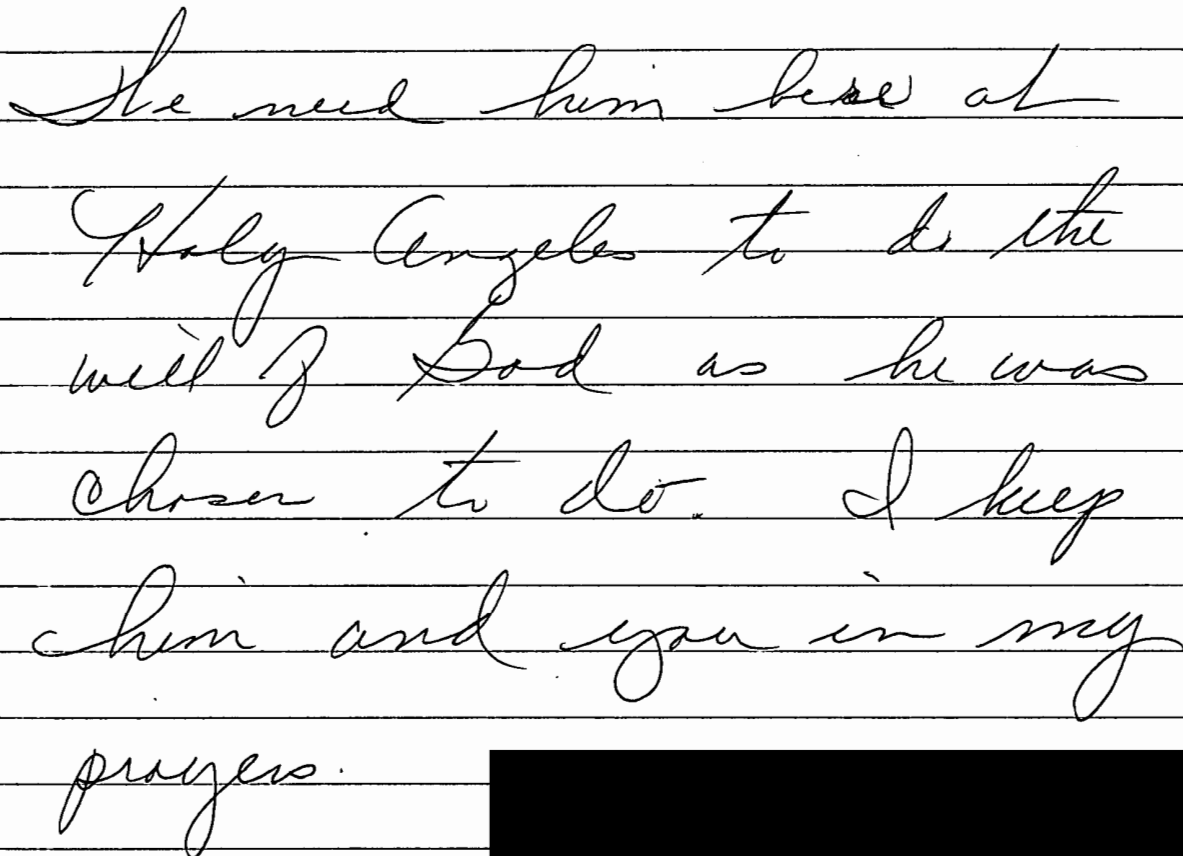 We need him here at
Holy Angeles to do the
will of God as he was
chosen to do. I keep
him and you in my
prayers.